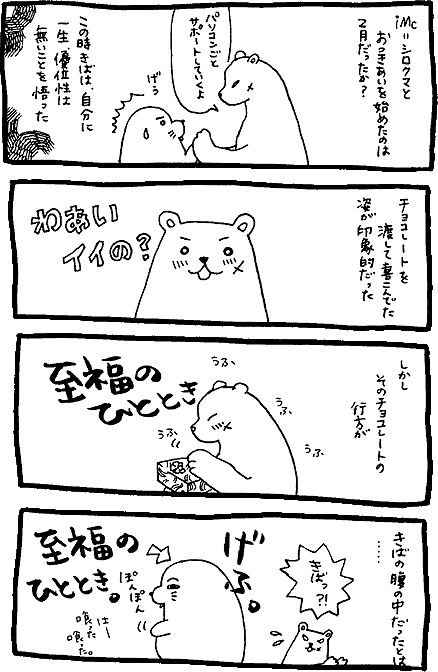 iMc=シロクマと
おつきあいを始めたのは
2月だったか?
パソコンごと
サポートしていくよ
げう
この時きばは、自分に
一生、優位性は
無いことを悟った
チョコレートを
渡して喜こんでた
姿が印象的だった
わあい
イイの?
しかし
そのチョコレートの
行方が
うふ、
うふ、
うふ
うふ
至福の
ひととき
きばの腹の中だったとは
……
きばっ?!
げふ。
至福の
ひととき。
ぽんぽん
はー
喰った
喰った。